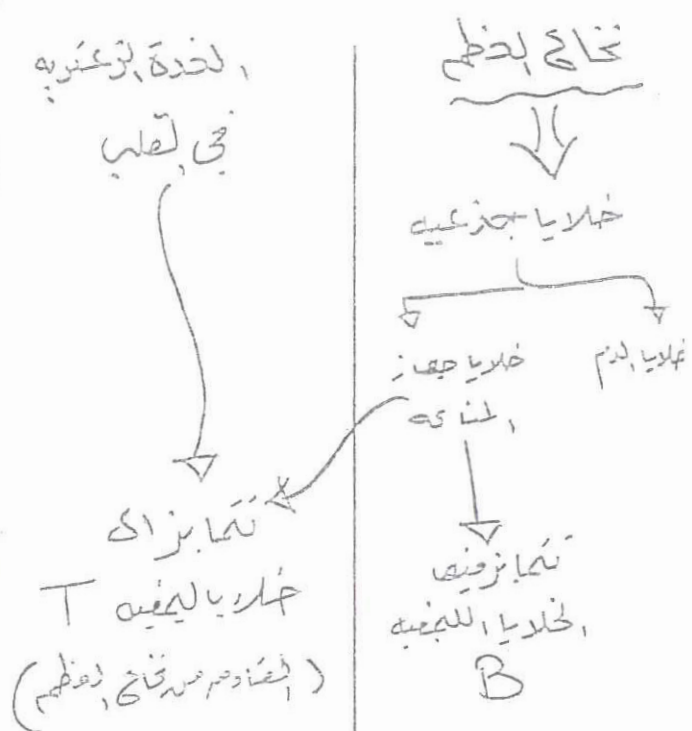 نخاع العظم
خلايا جذعيه
خلايا الدم
خلايا جهاز
المناعه
تتمايز فيها
الخلايا الليمفيه
B
الغدة الزعتريه
في القلب
تتمايز الى
خلايا ليمفيه T
(القادمه من نخاع العظم)